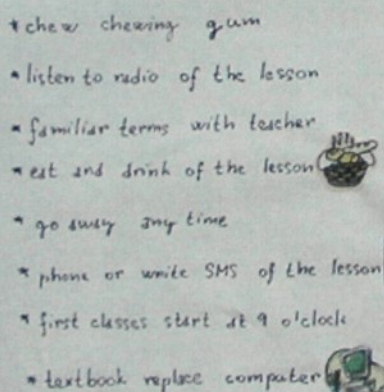 * chew chewing gum
* listen to radio of the lesson
* familiar terms with teacher
* eat and drink of the lesson
* go away any time
* phone or write SMS of the lesson
* first classes start at 9 o'clock
* textbook replace computer